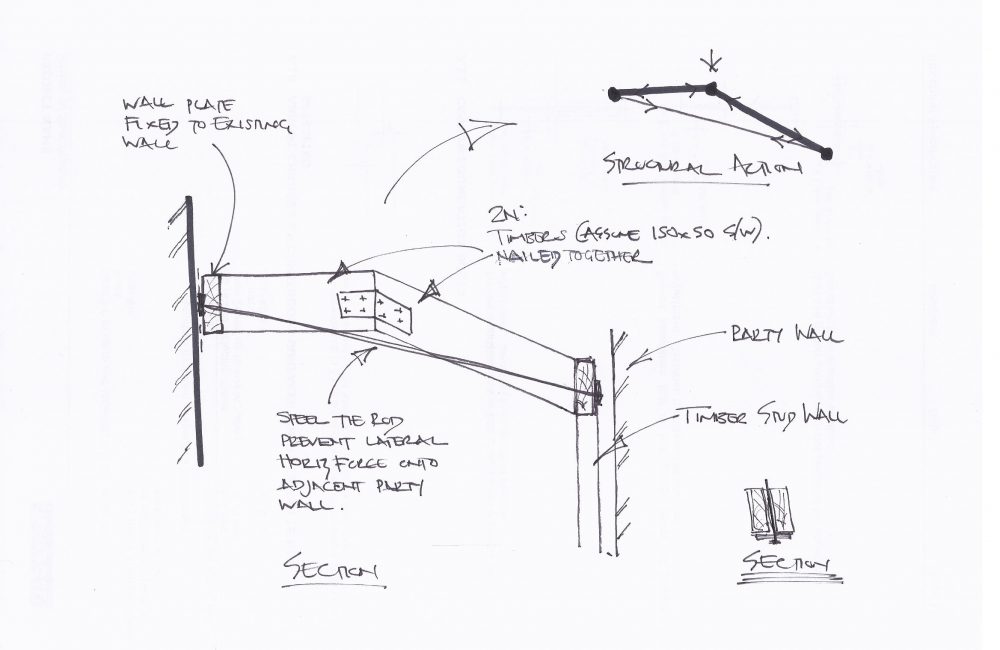 WALL PLATE
FIXED TO EXISTING
WALL
STRUCTURAL ACTION
2N:
TIMBERS (ASSUME 150x50 S/W).
NAILED TOGETHER
PARTY WALL
TIMBER STUD WALL
STEEL TIE ROD
PREVENT LATERAL
HORIZ FORCE ONTO
ADJACENT PARTY
WALL.
SECTION
SECTION